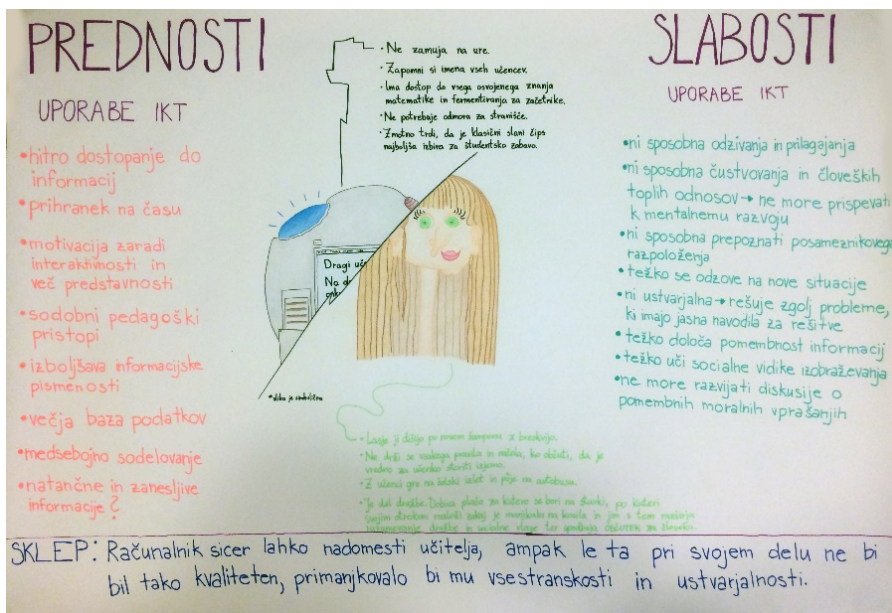 PREDNOSTI
UPORABE IKT
•hitro dostopanje do
informacij
•prihranek na času
•motivacija zaradi
interaktivnosti in
več predstavnosti
•sodobni pedagoški
pristopi
•izboljšava informacijske
pismenosti
•večja baza podatkov
•medsebojno sodelovanje
•natančne in zanesljive
informacije?
• Ne zamuja na ure.
• Zapomni si imena vseh učencev.
• Ima dostop do vsega osvojenega znanja
matematike in fermentiranja za začetnike.
• Ne potrebuje odmora za stranišče.
• Zmotno trdi, da je klasični slani čips
najboljša izbira za študentsko zabavo.
Dragi
Na
• slika je simbolična
• Lasje ji dišijo po
• Ne drži se vsakega pravila in načela, ko občuti, da je
vredno za učenko storiti izjemo.
• Z učenci gre na izlet in poje na avtobusu.
• Je del družbe. Dobiva plačo za katero se bori na stavki, po kateri
SLABOSTI
UPORABE IKT
•ni sposobna odzivanja in prilagajanja
•ni sposobna čustvovanja in človeških
toplih odnosov→ne more prispevati
k mentalnemu razvoju
•ni sposobna prepoznati posameznikovega
razpoloženja
•težko se odzove na nove situacije
•ni ustvarjalna→rešuje zgolj probleme,
ki imajo jasna navodila za rešitve
•težko določa pomembnost informacij
•težko uči socialne vidike izobraževanja
•ne more razvijati diskusije o
pomembnih moralnih vprašanjih
SKLEP: Računalnik sicer lahko nadomesti učitelja, ampak le ta pri svojem delu ne bi
bil tako kvaliteten, primanjkovalo bi mu vsestranskosti in ustvarjalnosti.